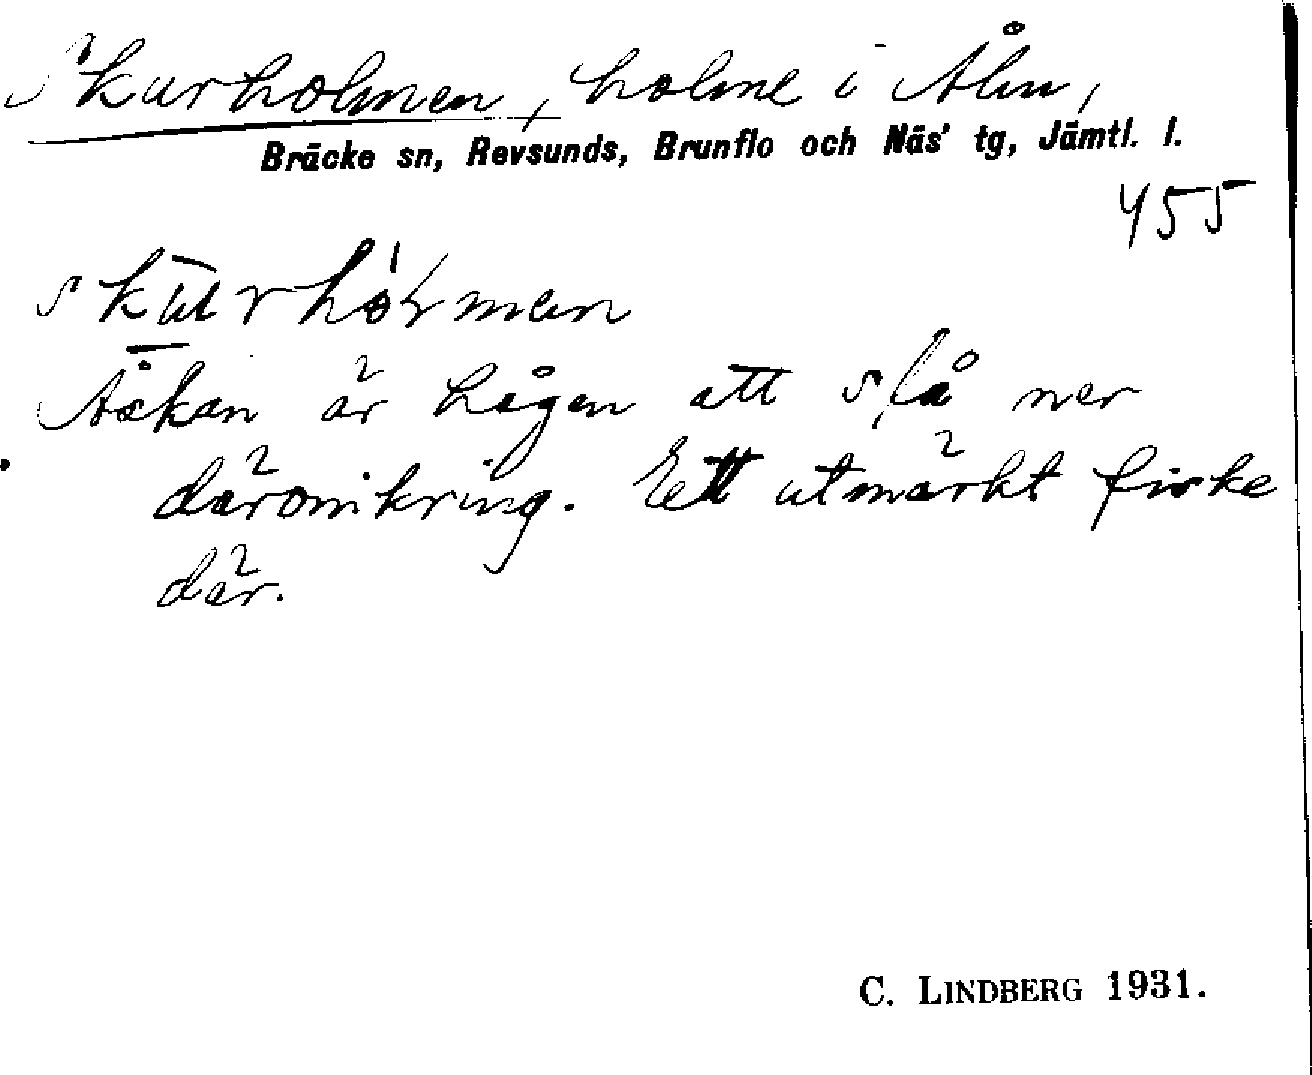 Skurholmen, holme i Ån,
Bräcke sn, Revsunds, Brunflo och Näs' tg, Jämtl. l.
455
skūrhółmen
Åskan är hågen att slå ner
däromkring. Ett utmärkt fiske
där.
C. LINDBERG 1931.